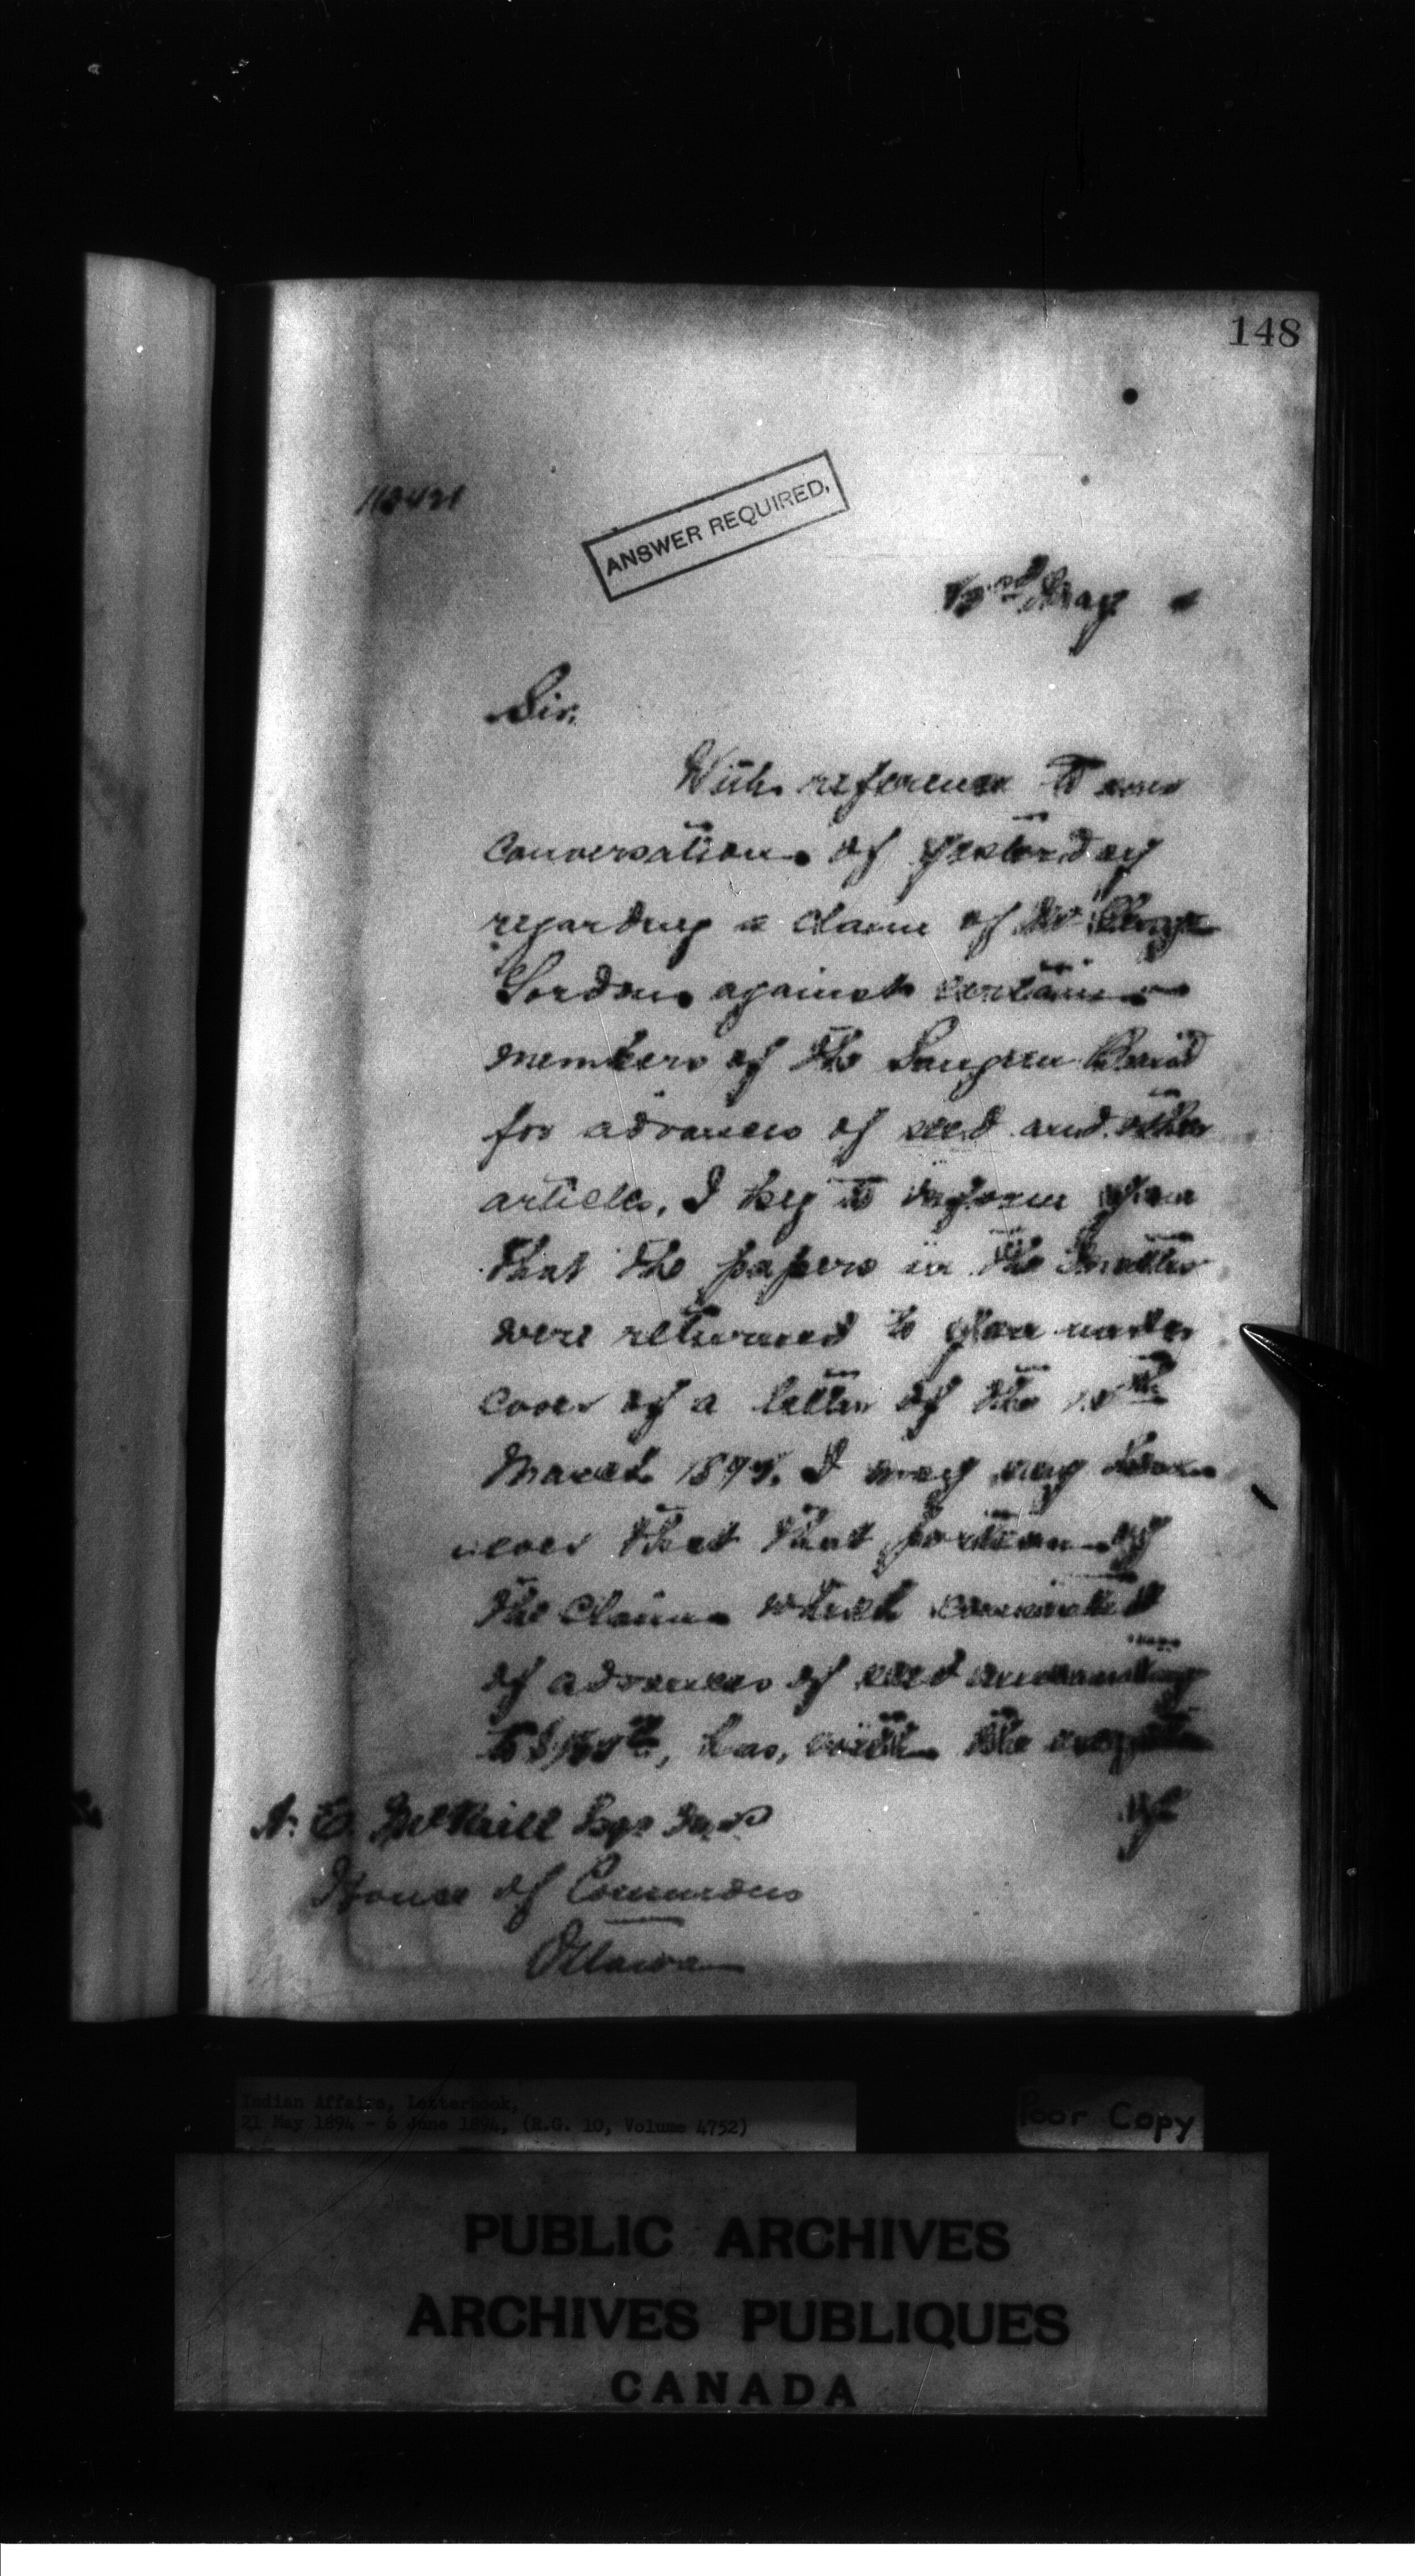 148
ANSWER REQUIRED,
May
Sir,
With reference to our
conversation of yesterday
regarding a claim of Mr George
Gordon against certain
members of the Saugeen Band
for advances of seed and other
articles, I beg to inform you
that the papers in the matter
were returned to you under
cover of a letter of the
March I may say
that that portion of
the claim which consisted
of advances of seed amounting
to has, with the
of
McNeill Esqr M.P.
House of Commons
Ottawa
Indian Affairs, Letterbook,
21 May 1894 - 6 June 1894, (R.G. 10, Volume 4752)
Poor Copy
PUBLIC ARCHIVES
ARCHIVES PUBLIQUES
CANADA